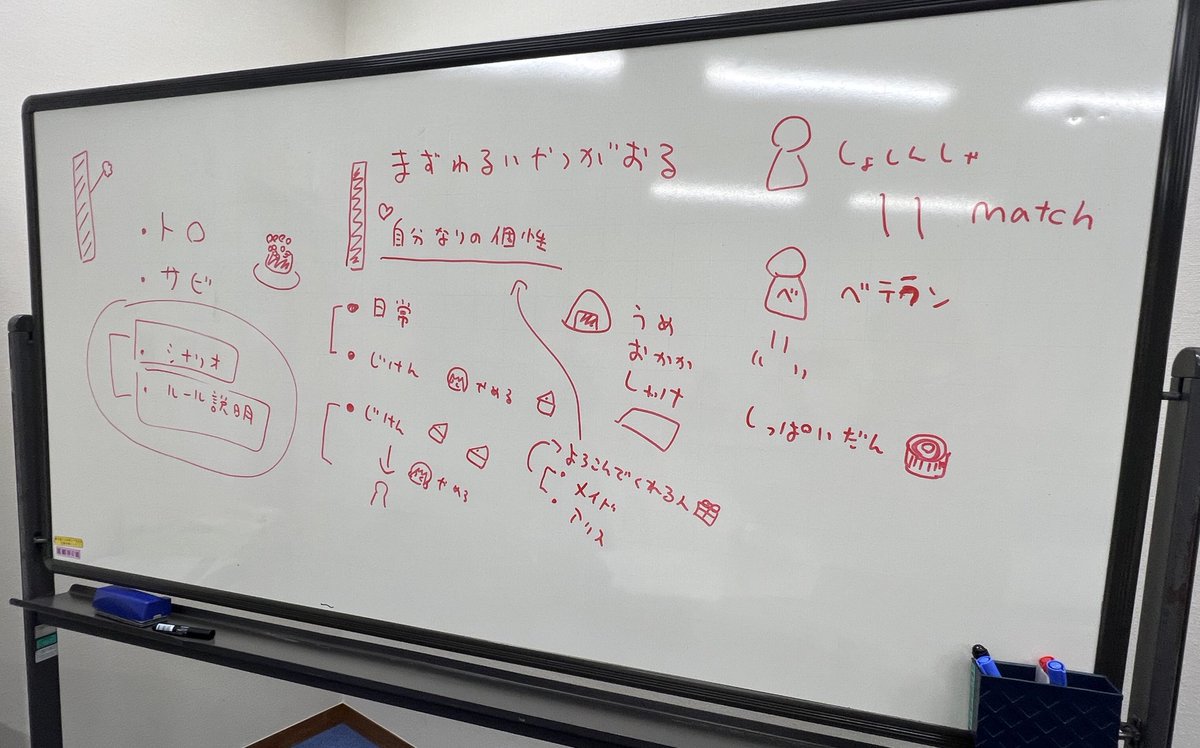 ・トロ
・サビ
・シナリオ
・ルール説明
まずわるいやつがおる
♡自分なりの個性
・日常
・じけん
やめる
・じけん
やめる
うめ
おかか
しゃけ
よろこんでくれる人
・メイド
・アリス
しょしんしゃ
match
べ
ベテラン
しっぱいだん